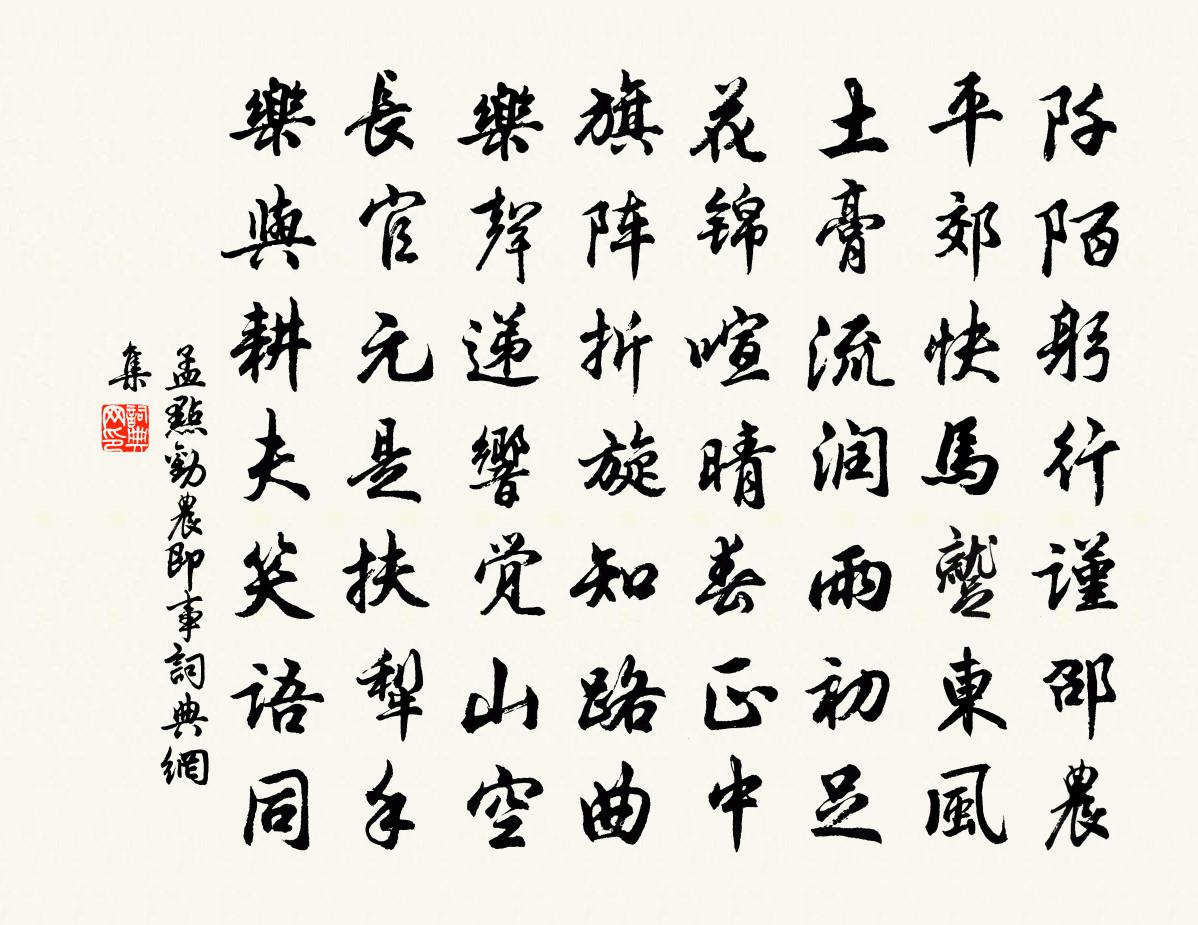 阡陌躬行謹邵農
平郊快馬蹔東風
土膏流润雨初足
花錦喧晴春正中
旗阵折旋知路曲
樂聲递響覚山空
長官元是扶犁手
樂與耕夫笑語同
孟點勸農即事詞典網
集
詞典
网印